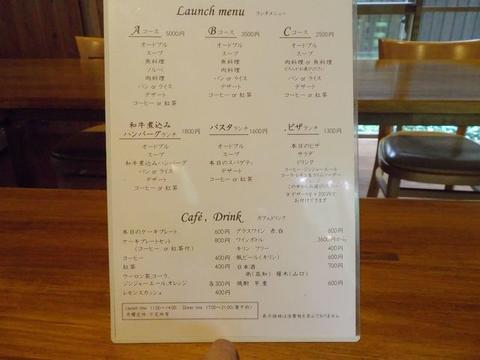 Launch menu ランチメニュー
Aコース 5000円
オードブル
スープ
魚料理
ソルベ
肉料理
パン or ライス
デザート
コーヒー or 紅茶
Bコース 3500円
オードブル
スープ
魚料理
肉料理
パン or ライス
デザート
コーヒー or 紅茶
Cコース 2500円
オードブル
スープ
肉料理 or 魚料理
パン or ライス
デザート
コーヒー or 紅茶
和牛煮込み
ハンバーグランチ 1800円
オードブル
スープ
和牛煮込みハンバーグ
パン or ライス
デザート
コーヒー or 紅茶
パスタランチ 1600円
オードブル
スープ
本日のスパゲティ
デザート
コーヒー or 紅茶
ピザランチ 1300円
本日のピザ
サラダ
ドリンク
コーヒー・ジンジャーエール
デザートも+200円で
お付けできます
Café, Drink カフェドリンク
本日のケーキプレート 600円
ケーキプレートセット 800円
(コーヒー or 紅茶付)
コーヒー 400円
紅茶 400円
ウーロン茶、コーラ、
ジンジャーエール、オレンジ 各300円
レモンスカッシュ 400円
グラスワイン 赤、白 600円
ワインボトル 3600円から
キリン フリー 400円
瓶ビール(キリン) 600円
日本酒 700円
南(高知) 雁木(山口)
焼酎 芋、麦 600円
Launch time 11:30〜14:00 Dinner time 17:00〜21:00(要予約)
月曜定休 不定休有
表示価格は消費税を含んでおりません